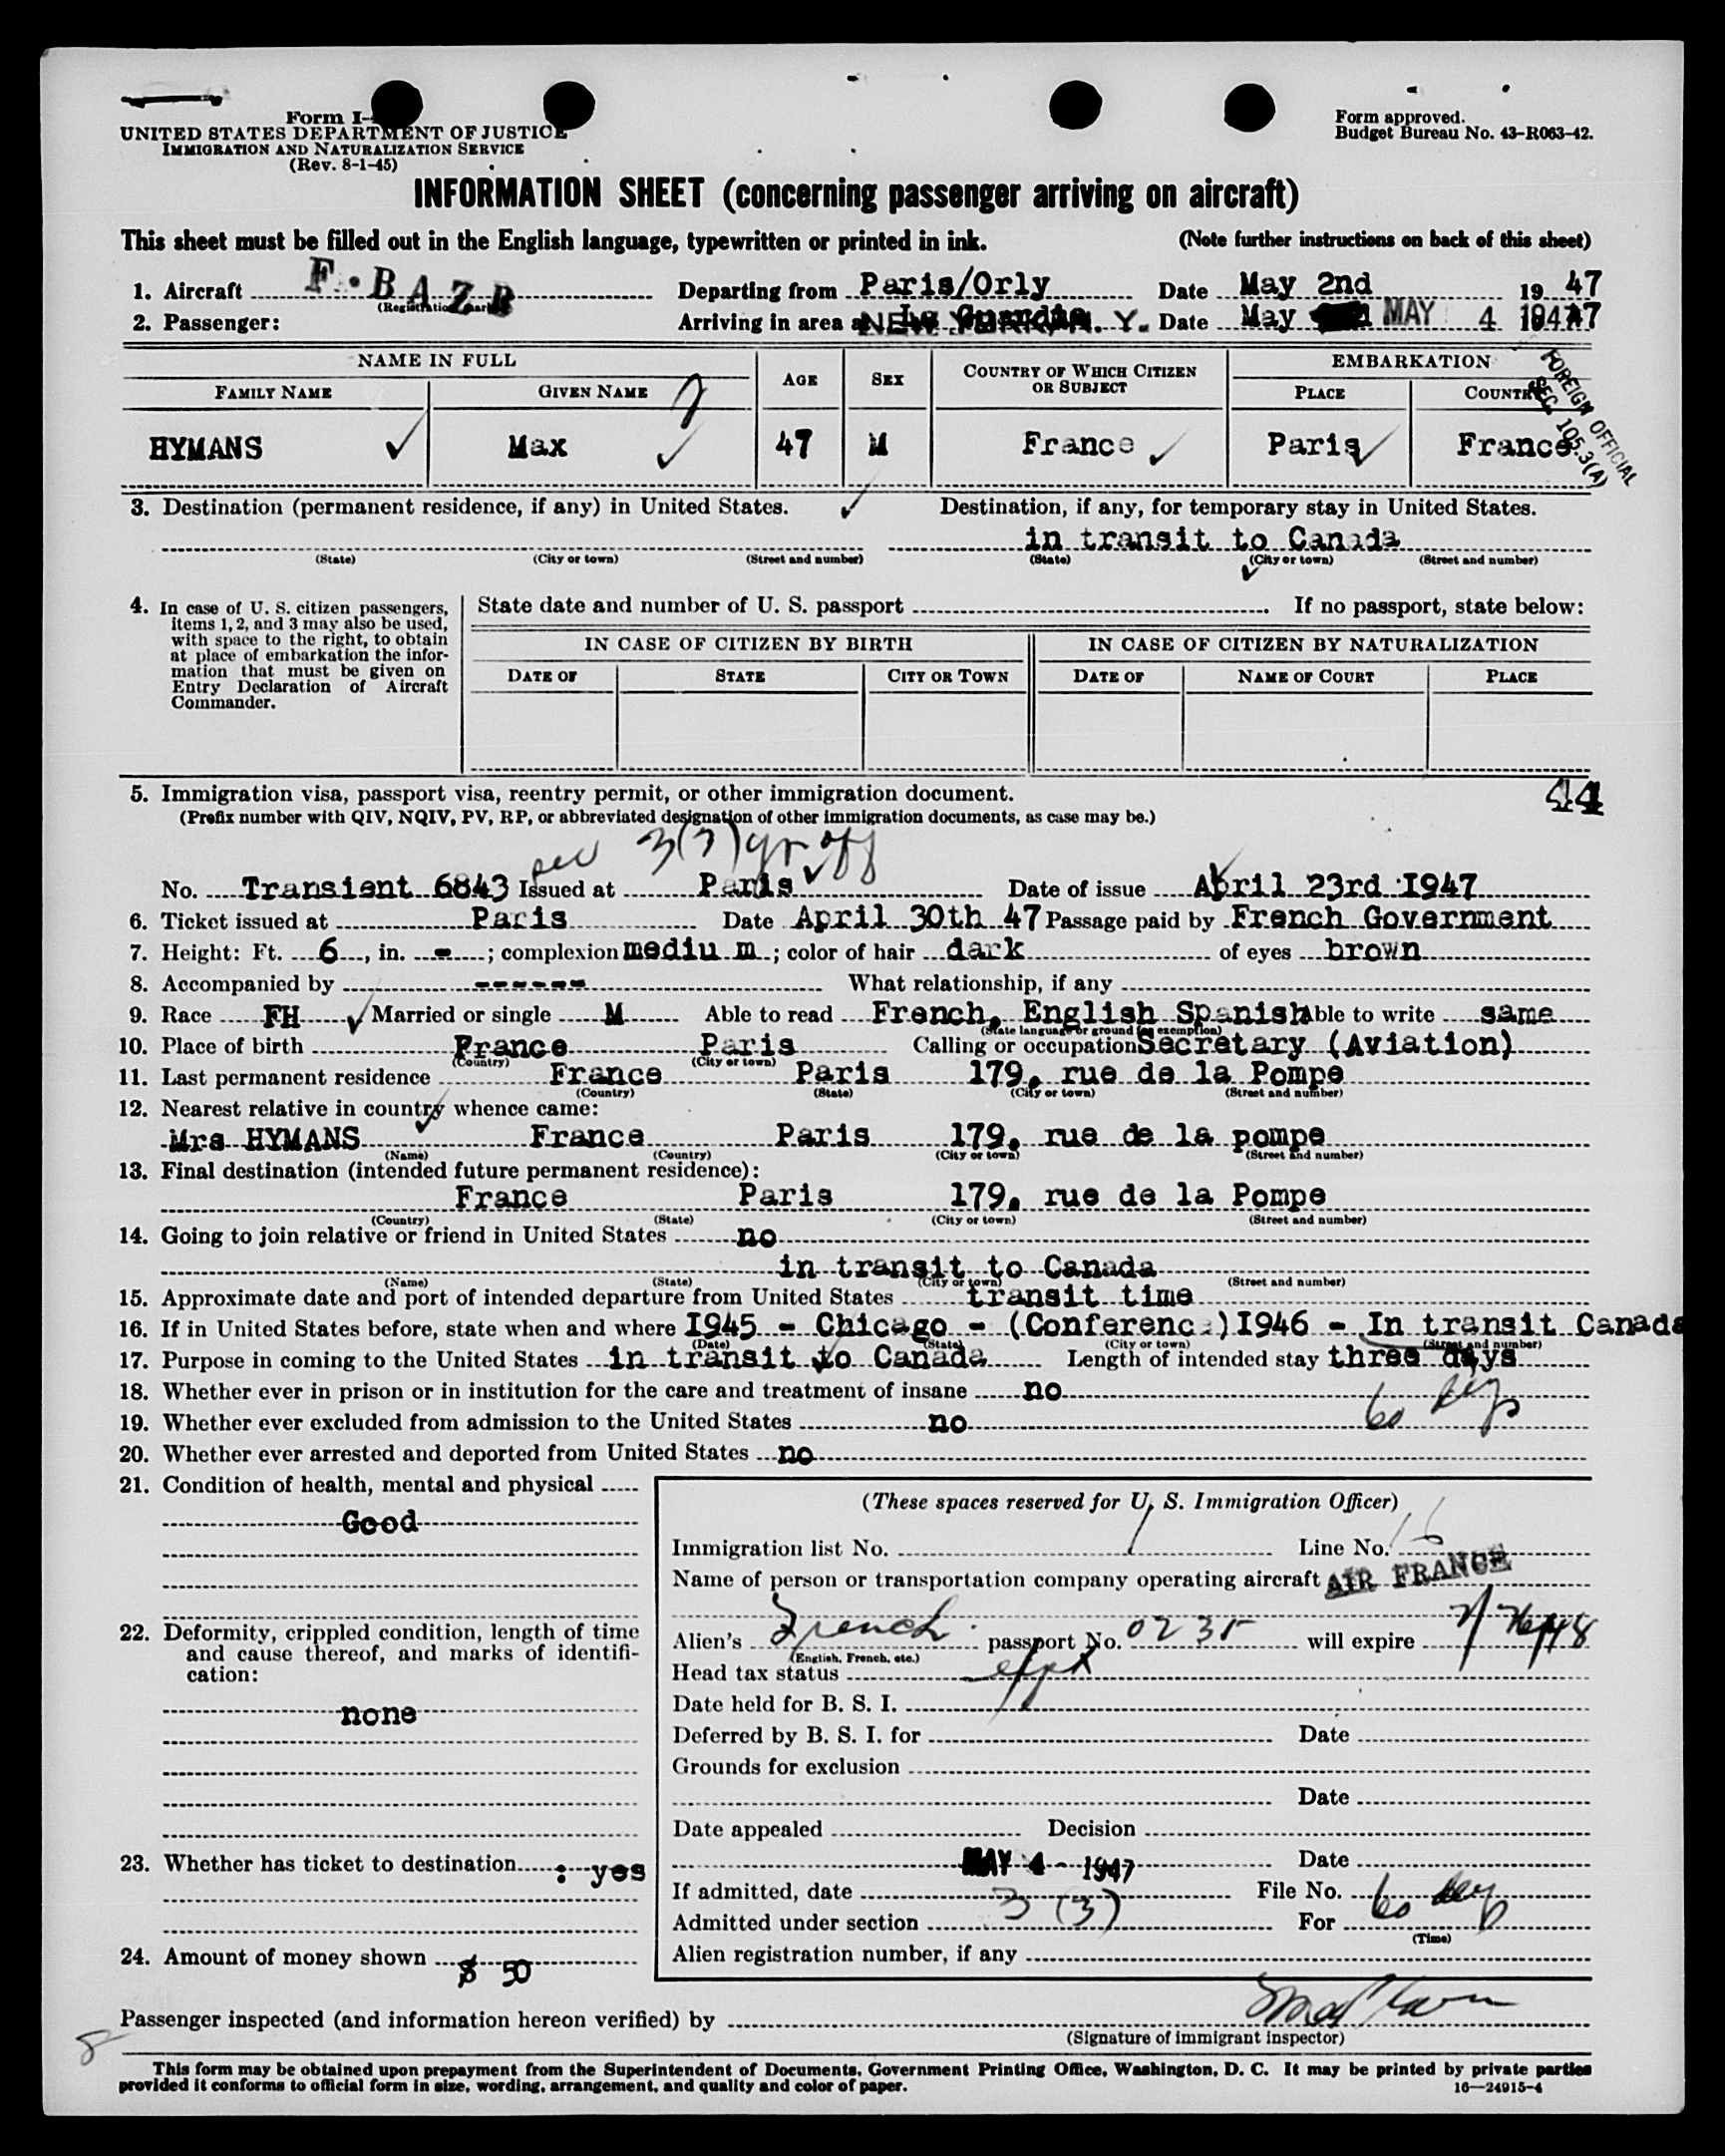 Form I-
UNITED STATES DEPARTMENT OF JUSTICE
IMMIGRATION AND NATURALIZATION SERVICE
(Rev. 8-1-45)
Form approved.
Budget Bureau No. 43-R063-42.
INFORMATION SHEET (concerning passenger arriving on aircraft)
This sheet must be filled out in the English language, typewritten or printed in ink. (Note further instructions on back of this sheet)
1. Aircraft F.BAZR Departing from Paris/Orly Date May 2nd 19 47
(Registration mark)
2. Passenger: Arriving in area at La Guardia NEW YORK, N. Y. Date May MAY 4 1947 47
NAME IN FULL AGE SEX COUNTRY OF WHICH CITIZEN OR SUBJECT EMBARKATION
FAMILY NAME GIVEN NAME PLACE COUNTRY
FOREIGN OFFICIAL
SEC. 105.3(A)
HYMANS Max 47 M France Paris France
3. Destination (permanent residence, if any) in United States. Destination, if any, for temporary stay in United States.
in transit to Canada
(State) (City or town) (Street and number) (State) (City or town) (Street and number)
4. In case of U. S. citizen passengers, items 1, 2, and 3 may also be used, with space to the right, to obtain at place of embarkation the information that must be given on Entry Declaration of Aircraft Commander.
State date and number of U. S. passport . If no passport, state below:
IN CASE OF CITIZEN BY BIRTH IN CASE OF CITIZEN BY NATURALIZATION
DATE OF STATE CITY OR TOWN DATE OF NAME OF COURT PLACE
5. Immigration visa, passport visa, reentry permit, or other immigration document. 44
(Prefix number with QIV, NQIV, PV, RP, or abbreviated designation of other immigration documents, as case may be.)
sec 3(7) gr off
No. Transient 6843 Issued at Paris Date of issue April 23rd I947
6. Ticket issued at Paris Date April 30th 47 Passage paid by French Government
7. Height: Ft. 6, in. - ; complexion medium ; color of hair dark of eyes brown
8. Accompanied by ------ What relationship, if any
9. Race FH Married or single M Able to read French, English Spanish Able to write same
(State language or ground for exemption)
10. Place of birth France Paris Calling or occupation Secretary (Aviation)
(Country) (City or town)
11. Last permanent residence France Paris 179, rue de la Pompe
(Country) (State) (City or town) (Street and number)
12. Nearest relative in country whence came:
Mrs HYMANS France Paris 179, rue de la pompe
(Name) (Country) (City or town) (Street and number)
13. Final destination (intended future permanent residence):
France Paris 179, rue de la Pompe
(Country) (State) (City or town) (Street and number)
14. Going to join relative or friend in United States no
in transit to Canada
(Name) (State) (City or town) (Street and number)
15. Approximate date and port of intended departure from United States transit time
16. If in United States before, state when and where I945 - Chicago - (Conference) I946 - In transit Canada
(Date) (State) (City or town) (Street and number)
17. Purpose in coming to the United States in transit to Canada Length of intended stay three days
18. Whether ever in prison or in institution for the care and treatment of insane no
60 dys
19. Whether ever excluded from admission to the United States no
20. Whether ever arrested and deported from United States no
21. Condition of health, mental and physical
Good
22. Deformity, crippled condition, length of time and cause thereof, and marks of identification:
none
23. Whether has ticket to destination : yes
24. Amount of money shown $ 50
(These spaces reserved for U. S. Immigration Officer)
Immigration list No. 1 Line No. 16
Name of person or transportation company operating aircraft AIR FRANCE
Alien's French passport No. 0235 will expire
(English, French, etc.)
Head tax status
Date held for B. S. I.
Deferred by B. S. I. for Date
Grounds for exclusion
Date
Date appealed Decision
MAY 4 - 1947 Date
If admitted, date File No.
Admitted under section 3 (3) For 60 dys
(Time)
Alien registration number, if any
Passenger inspected (and information hereon verified) by
(Signature of immigrant inspector)
8
This form may be obtained upon prepayment from the Superintendent of Documents, Government Printing Office, Washington, D. C. It may be printed by private parties
provided it conforms to official form in size, wording, arrangement, and quality and color of paper. 16—24915-4